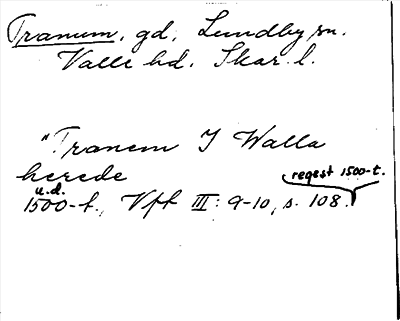 Tranum, gd, Lundby sn.
Valle hd. Skar. l.
"Tranem I Walla
herede
regest 1500-t.
u.d.
1500-t., Vft III: 9-10, s. 108.